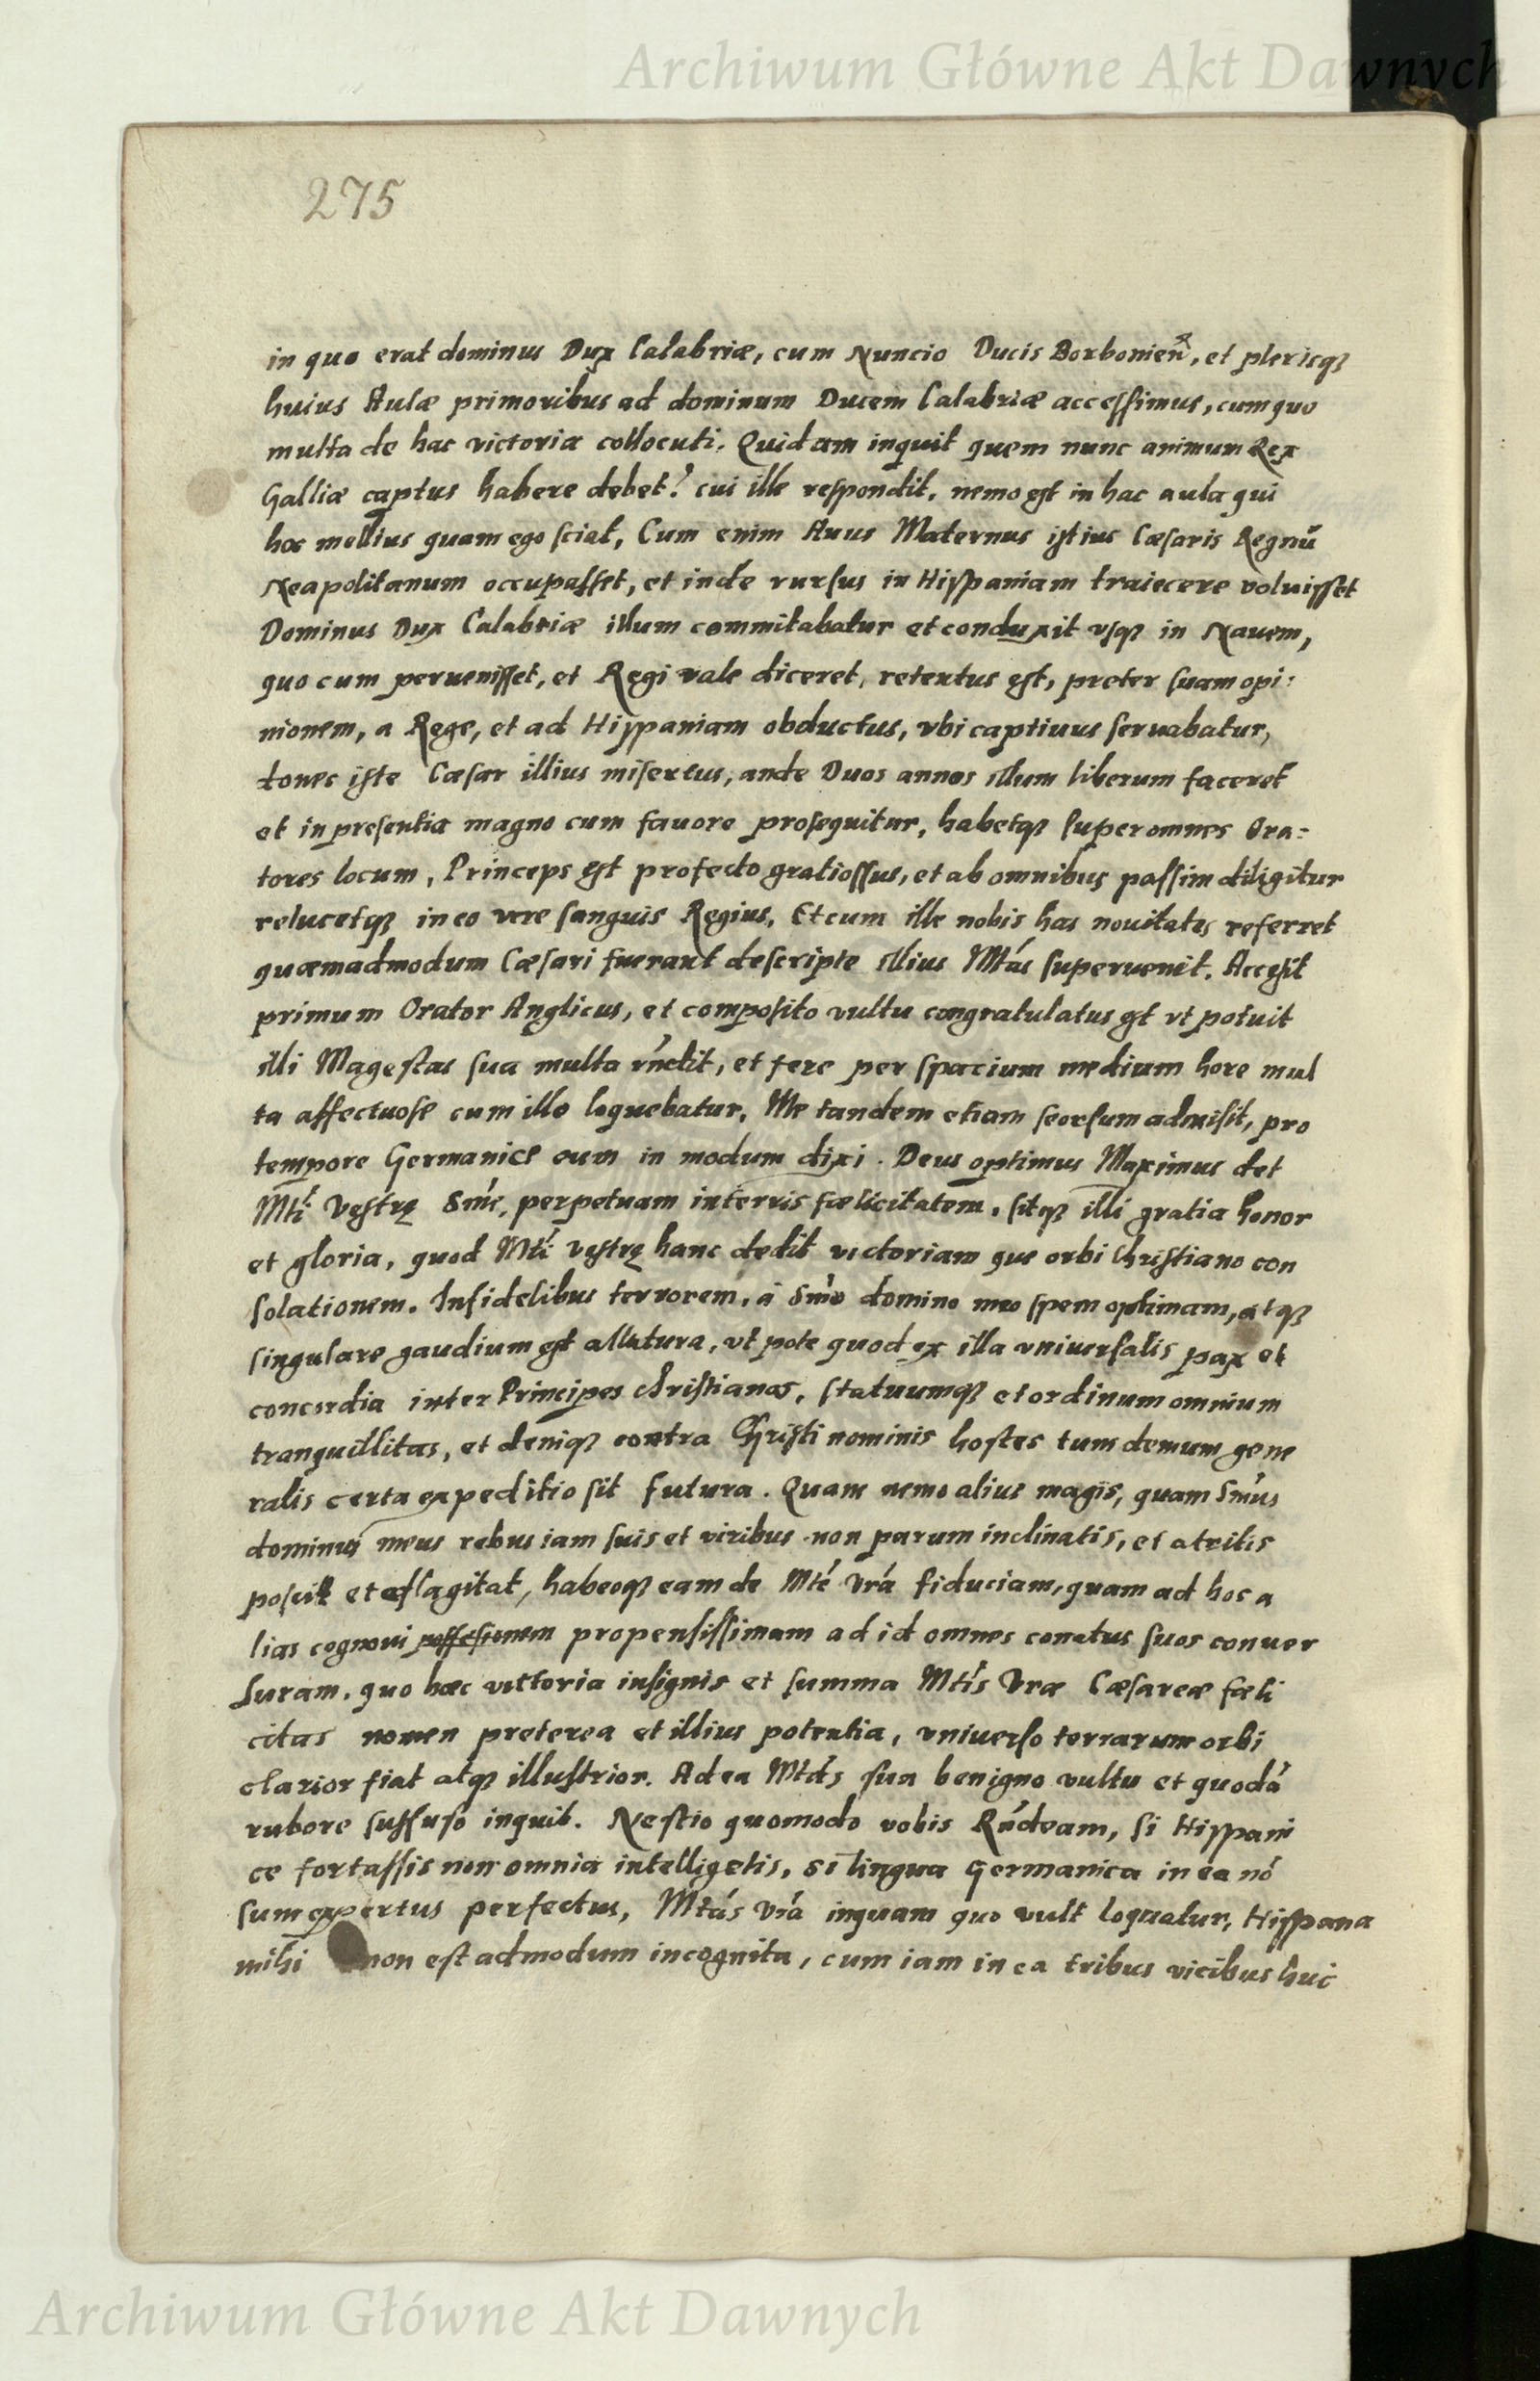 Archiwum Główne Akt Dawnych
275
in quo erat dominus Dux Calabriæ, cum Nuncio Ducis Borbonien, et plerisq
huius Aulæ primoribus ad dominum Ducem Calabriæ accessimus, cum quo
multa de hac victoria collocuti. Quidam inquit quem nunc animum Rex
Galliæ captus habere debet? cui ille respondit, nemo est in hac aula qui
hoc mellius quam ego sciat, Cum enim Auus Maternus istius Cæsaris Regnũ
Neapolitanum occupasset, et inde rursus in Hispaniam traiecere voluisset
Dominus Dux Calabriæ illum commitabatur et conduxit vsq in Nauem,
quo cum peruenisset, et Regi vale diceret, retentus est, preter suam opi:
nionem, a Rege, et ad Hispaniam obductus, vbi captiuus seruabatur,
donec iste Cæsar illius misertus, ande Duos annos illum liberum faceret
et in presentia magno cum fauore prosequitur, habetq super omnes Ora:
tores locum, Princeps est profecto gratiossus, et ab omnibus passim diligitur
relucetq in eo vere sanguis Regius. Et cum ille nobis has nouitates referret
quæmadmodum Cæsari fuerant descripte illius Mtás superuenit. Accesit
primum Orator Anglicus, et composito vultu congratulatus est vt potuit
illi Magestas sua multa rńdit, et fere per spacium medium hore mul
ta affectuose cum illo loquebatur. Me tandem etiam seorsum admisit, pro
tempore Germanice eum in modum dixi. Deus optimus Maximus det
Mti Vestrę Smę, perpetuam in terris fœlicitatem, sitq illi gratia honor
et gloria, quod Mti vestrę hanc dedit victoriam que orbi Christiano con
solationem. Infidelibus terrorem, a Smo domino meo spem optimam, atq
singulare gaudium est allatura, vt pote quod ex illa vniuersalis pax et
concordia inter Principes christianos, statuumq et ordinum omnium
tranquillitas, et deniq contra Christi nominis hostes tum demum gene
ralis certa expeditio sit futura. Quam nemo alius magis, quam Smus
dominus meus rebus iam suis et viribus non parum inclinatis, et atritis
poscit et eflagitat, habeoq eam de Mte Vrá fiduciam, quam ad hoc a
lias cognoui propensissimam ad id omnes conatus suos conuer
suram, quo hæc victoria insignis et summa Mtis Vræ Cæsareæ fœli
citas nomen preterea et illius potentia, vniuerso terrarum orbi
clarior fiat atq illustrior. Ad ea Mtás sua benigno vultu et quodá
rubore suffuso inquit. Nescio quomodo vobis Rńdeam, si Hispani
ce fortassis non omnia intelligetis, si lingua Germanica in ea nó
sum expertus perfectus, Mtás Vrá inquam quo vult loquatur, Hispana
mihi non est admodum incognita, cum iam in ea tribus vicibus huc
Archiwum Główne Akt Dawnych